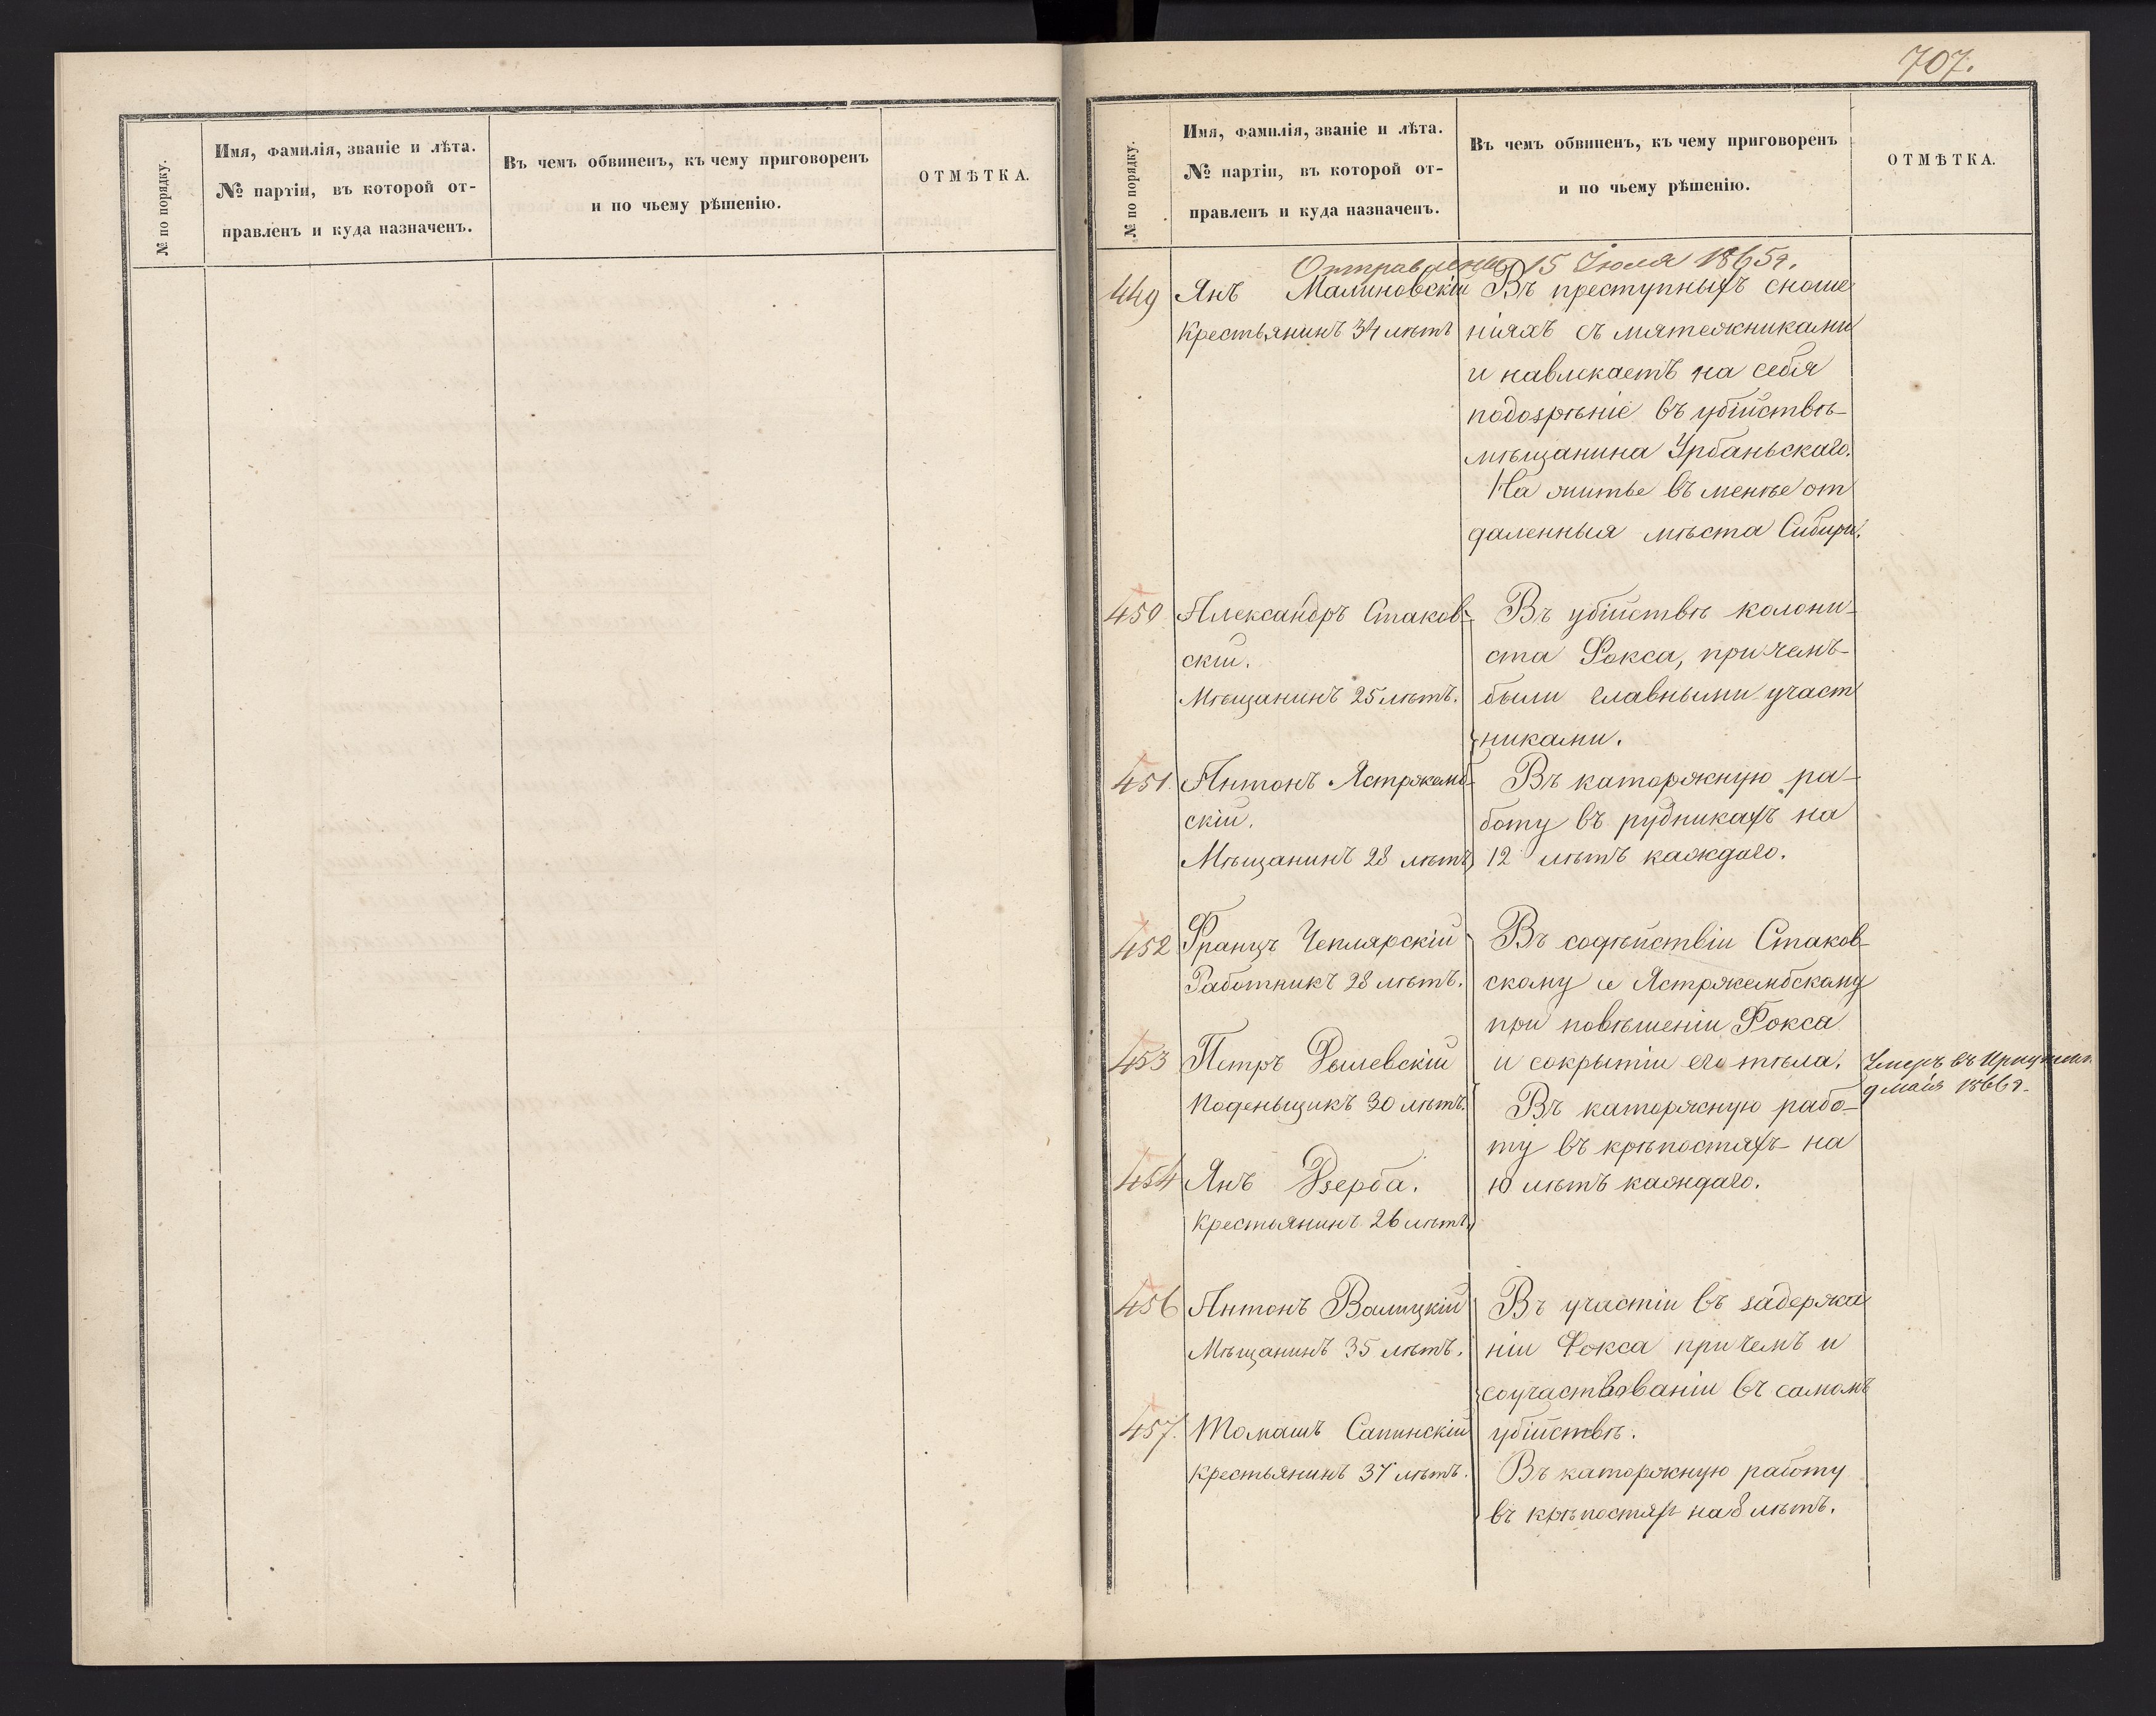 № по порядку.
Имя, фамилія, званіе и лѣта.
№ партіи, въ которой от-
правленъ и куда назначенъ.
Въ чемъ обвиненъ, къ чему приговоренъ
и по чьему рѣшенію.
ОТМѢТКА.
707.
№ по порядку.
Имя, фамилія, званіе и лѣта.
№ партіи, въ которой от-
правленъ и куда назначенъ.
Въ чемъ обвиненъ, къ чему приговоренъ
и по чьему рѣшенію.
ОТМѢТКА.
Отправлены 15 Іюля 1865 г.
449 Янъ Малиновскій
Крестьянинъ 34 лѣтъ
Въ преступныхъ сноше
ніяхъ съ мятежниками
и навлекаетъ на себя
подозрѣніе въ убійствѣ
мѣщанина Урбаньскаго.
На житье въ менѣе от
даленныя мѣста Сибири.
450 Александръ Стаков-
скій.
Мѣщанинъ 25 лѣтъ.
451. Антонъ Ястржемб-
скій.
Мѣщанинъ 28 лѣтъ
Въ убійствѣ колони-
ста Фокса, причемъ
были главными участ
никами.
Въ каторжную ра-
боту въ рудникахъ на
12 лѣтъ каждаго.
452 Францъ Чеплярскій
Работникъ 28 лѣтъ.
453 Петръ Дылевскій
Поденьщикъ 30 лѣтъ.
454 Янъ Дзерба.
Крестьянинъ 26 лѣтъ
Въ содѣйствіи Стаков-
скому и Ястржембскому
при повѣшеніи Фокса
и сокрытіи его тѣла.
Въ каторжную рабо-
ту въ крѣпостяхъ на
10 лѣтъ каждаго.
Умеръ въ
9 мая 1866 г.
456 Антонъ Валицкій
Мѣщанинъ 35 лѣтъ.
457. Томашъ Сапинскій
Крестьянинъ 37 лѣтъ.
Въ участіи въ задержа
ніи Фокса причемъ и
соучаствованіи въ самомъ
убійствѣ.
Въ каторжную работу
въ крѣпостяхъ на 8 лѣтъ.